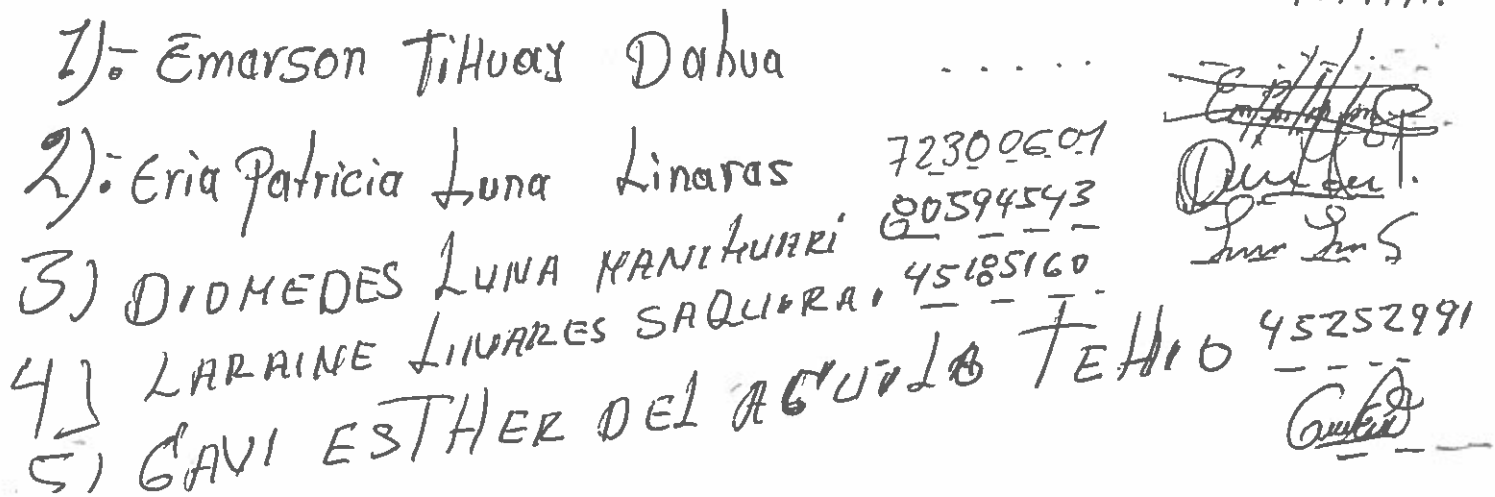 1).- Emarson TiHuay Dahua .....
2).- Eria Patricia Luna Linaras 72300601
3) DIOMEDES LUNA MANIHUARI 80594543
4) LARAINE LINARES SAQUIRA. 45185160
5) GAVI ESTHER DEL AGUILA TEHIO 45252991